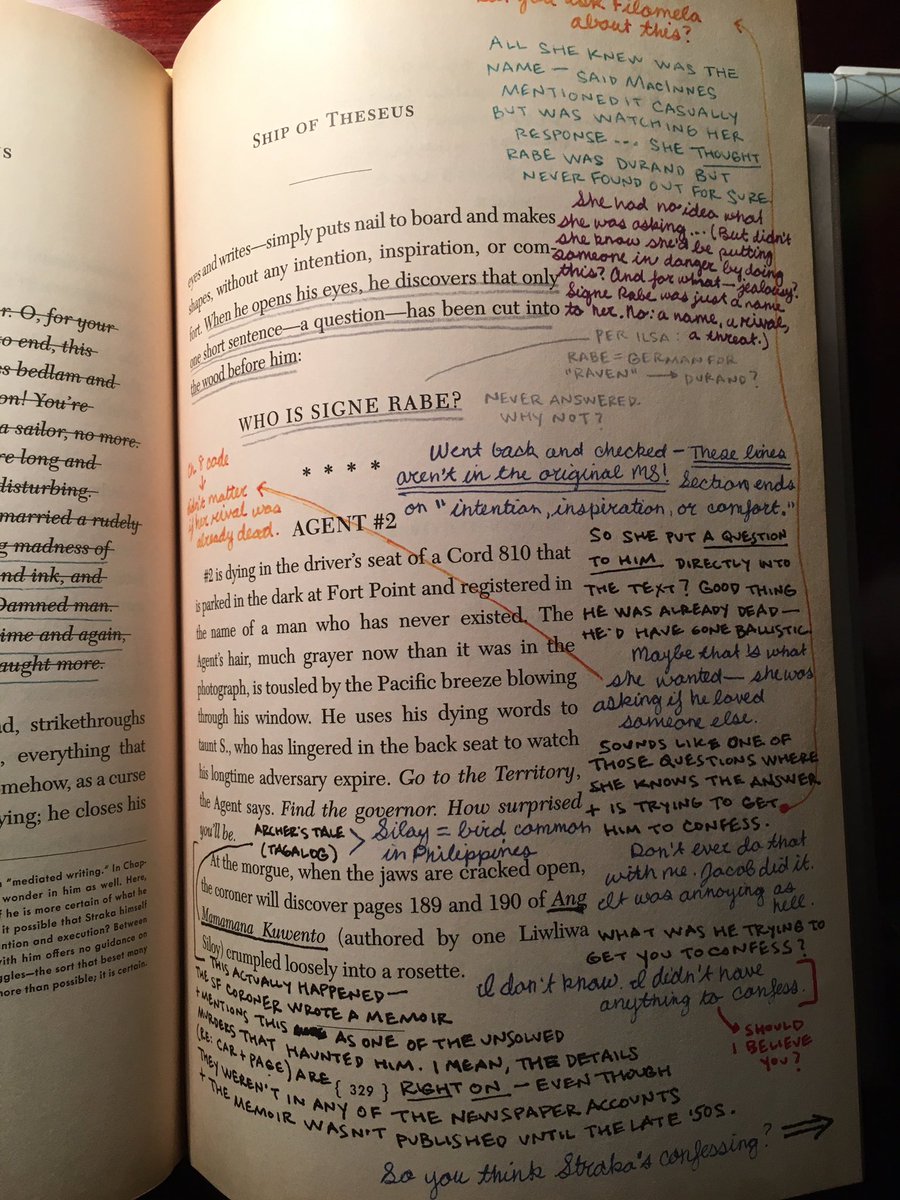 US
r. O, for your
to end, this
es bedlam and
on! You're
a sailor, no more.
re long and
disturbing.
married a rudely
g madness of
nd ink, and
Damned man.
ime and again,
aught more.
d, strikethroughs
, everything that
mehow, as a curse
ying; he closes his
n "mediated writing." In Chap-
wonder in him as well. Here,
f he is more certain of what he
it possible that Straka himself
ntention and execution? Between
with him offers no guidance on
ggles—the sort that beset many
more than possible; it is certain.
you ask Filomela
about this?
ALL SHE KNEW WAS THE
NAME — SAID MACINNES
MENTIONED IT CASUALLY
BUT WAS WATCHING HER
RESPONSE... SHE THOUGHT
RABE WAS DURAND BUT
NEVER FOUND OUT FOR SURE.
SHIP OF THESEUS
She had no idea what
she was asking... (But didn't
she know she'd be putting
someone in danger by doing
this? And for what—jealousy?
Signe Rabe was just a name
to her. No: a name, a rival,
a threat.)
eyes and writes—simply puts nail to board and makes
shapes, without any intention, inspiration, or com-
fort. When he opens his eyes, he discovers that only
one short sentence—a question—has been cut into
the wood before him:
PER ILSA:
RABE = GERMAN FOR
"RAVEN" → DURAND?
WHO IS SIGNE RABE?
NEVER ANSWERED.
WHY NOT?
* * * *
Went back and checked — These lines
aren't in the original MS! Section ends
on "intention, inspiration, or comfort."
Ch 8 code
↓
didn't matter
if her rival was
already dead.
SO SHE PUT A QUESTION
TO HIM DIRECTLY INTO
THE TEXT? GOOD THING
HE WAS ALREADY DEAD—
HE'D HAVE GONE BALLISTIC
Maybe that is what
she wanted — she was
asking if he loved
someone else.
SOUNDS LIKE ONE OF
THOSE QUESTIONS WHERE
SHE KNOWS THE ANSWER
+ IS TRYING TO GET
HIM TO CONFESS.
Don't ever do that
with me. Jacob did it.
It was annoying as
hell.
WHAT WAS HE TRYING TO
GET YOU TO CONFESS?
I don't know. I didn't have
anything to confess.
SHOULD
I BELIEVE
YOU?
AGENT #2
#2 is dying in the driver's seat of a Cord 810 that
is parked in the dark at Fort Point and registered in
the name of a man who has never existed. The
Agent's hair, much grayer now than it was in the
photograph, is tousled by the Pacific breeze blowing
through his window. He uses his dying words to
taunt S., who has lingered in the back seat to watch
his longtime adversary expire. Go to the Territory,
the Agent says. Find the governor. How surprised
you'll be.
ARCHER'S TALE
(TAGALOG)
Silay = bird common
in Philippines
At the morgue, when the jaws are cracked open,
the coroner will discover pages 189 and 190 of Ang
Mamamana Kuwento (authored by one Liwliwa
Siloy) crumpled loosely into a rosette.
THIS ACTUALLY HAPPENED—
THE SF CORONER WROTE A MEMOIR
+ MENTIONS THIS AS ONE OF THE UNSOLVED
MURDERS THAT HAUNTED HIM. I MEAN, THE DETAILS
(RE: CAR + PAGE) ARE RIGHT ON — EVEN THOUGH
THEY WEREN'T IN ANY OF THE NEWSPAPER ACCOUNTS
+ THE MEMOIR WASN'T PUBLISHED UNTIL THE LATE '50S.
{ 329 }
So you think Straka's confessing?